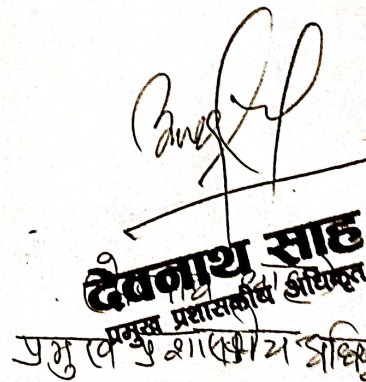 देवनाथ साह
प्रमुख प्रशासकीय अधिकृत
प्रमुख प्रशासकीय अधि